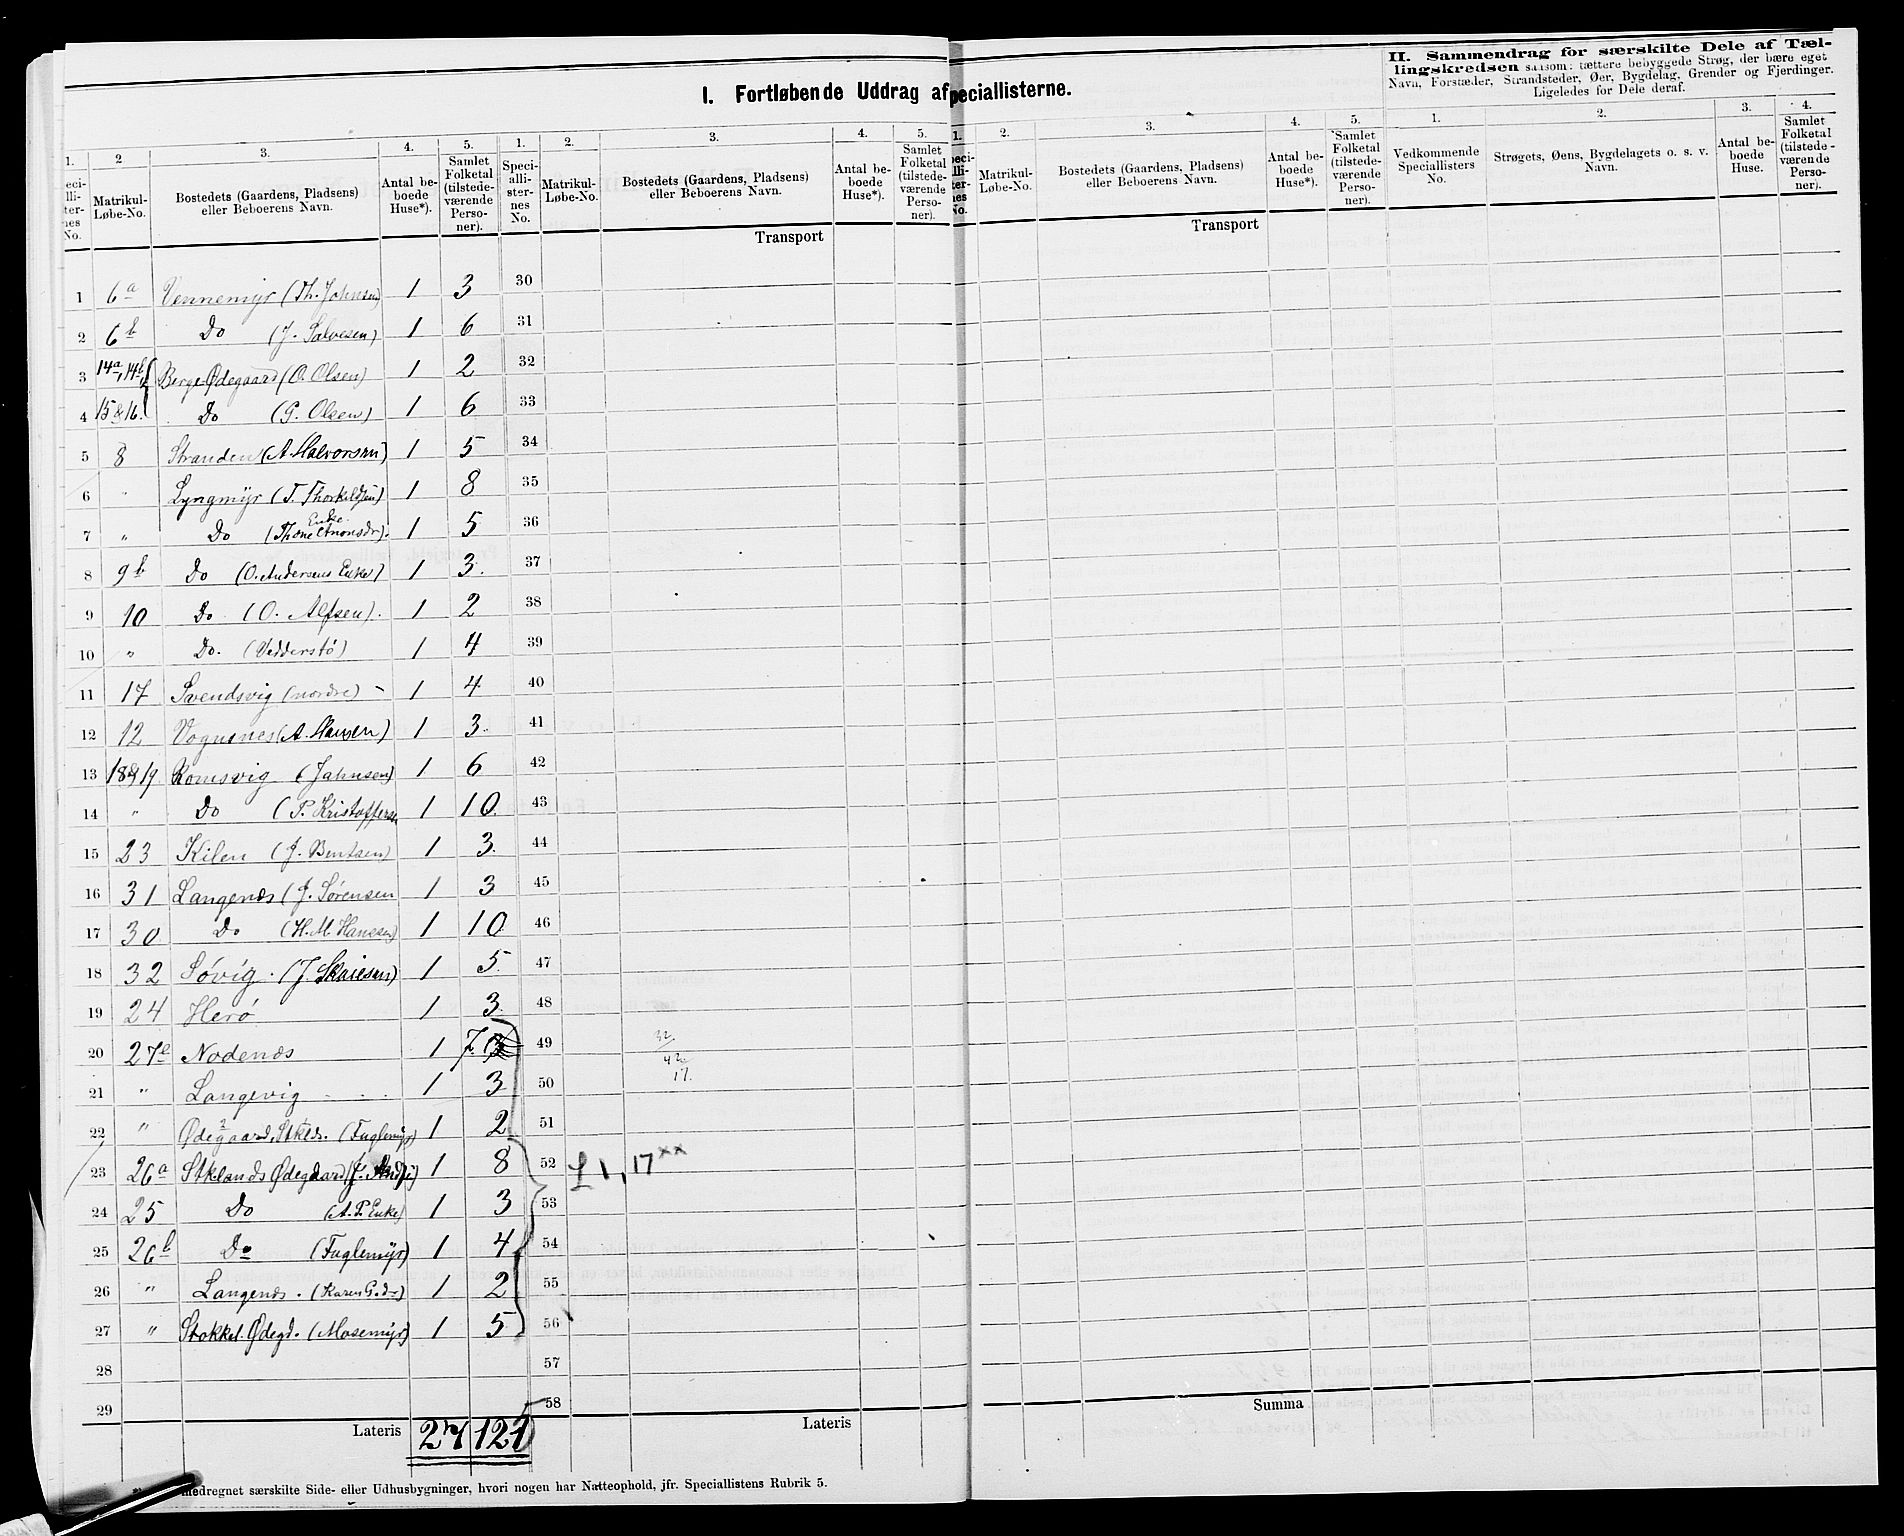 I. Fortløbende Uddrag af
peciallisterne.
II. Sammendrag for særskilte Dele af Tæl-
lingskredsen saasom: tættere bebyggede Strøg, der bære eget
Navn, Forstæder, Strandsteder, Øer, Bygdelag, Grender og Fjerdinger.
Ligeledes for Dele deraf.
1. 2 3. 4. 5. 1. 2. 3. 4. 5.
eci-
lli-
ter-
nes
No.
Matrikul-
Løbe-No.
Bostedets (Gaardens, Pladsens)
eller Beboerens Navn.
Antal be-
boede
Huse*).
Samlet
Folketal
(tilstede-
værende
Perso-
ner).
Speci-
alli-
ster-
nes
No.
Matrikul-
Løbe-No.
Bostedets (Gaardens, Pladsens)
eller Beboerens Navn.
Antal be-
boede
Huse*).
Samlet
Folketal
(tilstede-
værende
Perso-
ner).
1. 2. 3. 4. 5. 1. 2. 3. 4.
peci-
lli-
ter-
nes
No.
Matrikul-
Løbe-No.
Bostedets (Gaardens, Pladsens)
eller Beboerens Navn.
Antal be-
boede
Huse*).
Samlet
Folketal
(tilstede-
værende
Perso-
ner).
Vedkommende
Speciallisters
No.
Strøgets, Øens, Bygdelagets o. s. v.
Navn.
Antal be-
boede
Huse.
Samlet
Folketal
(tilstede-
værende
Perso-
ner).
Transport
Transport
1 6a Vennemyr (Th. Johnsen) 1 3 30
2 6b Do (J. Salvesen) 1 6 31
3 14a, 14b Berge Ødegaard (O. Olsen) 1 2 32
4 15 & 16. Do (G. Olsen) 1 6 33
5 8 Stranden (A. Halvorsen) 1 5 34
6 " Lyngmyr (T. Thorkildsen) 1 8 35
Enke
7 " Do (Thone Amonsdr). 1 5 36
8 9b Do (O. Andersens Enke) 1 3. 37
9 10 Do. (O. Alfsen). 1 2 38
10 " Do. (Vedderstø) 1 4 39
11 17 Svendsvig (nordre) - 1 4 40
12 12 Vognsnes (A. Hansen) 1 3. 41
13 18 & 19. Romsvig (Jahnsen) 1 6 42
14 " Do (P. Kristoffersen 1 10. 43
15 23 Kilen (J. Bentsen) 1 3. 44
16 31 Langenæs (J. Sørensen 1 3 45
17 30 Do (H. M. Hansen) 1 10 46
18 32 Søvig. (J. 1 5. 47
19 24 Herø 1 3. 48
20 27e Nodenæs 1 7. 49
32
42
17.
21 " Langevig 1 3 50
22 " Ødegaard, Stkld. (Fuglemyr) 1 2 51
23 26a Stklands Ødegaard (J. 1 8 52 £ 1, 17xx
24 25 Do (A. P. Enke) 1 3 53
25 26b Do (Fuglemyr) 1 4 54
26 " Langenæs. (Karen G.dr) 1 2 55
27 " Stokkel. Ødegd. (Mosemyr) 1 5 56
28 57
29 58
Lateris 27 121
Lateris
Summa
medregnet særskilte Side- eller Udhusbygninger, hvori nogen har Natteophold, jfr. Speciallistens Rubrik 5.